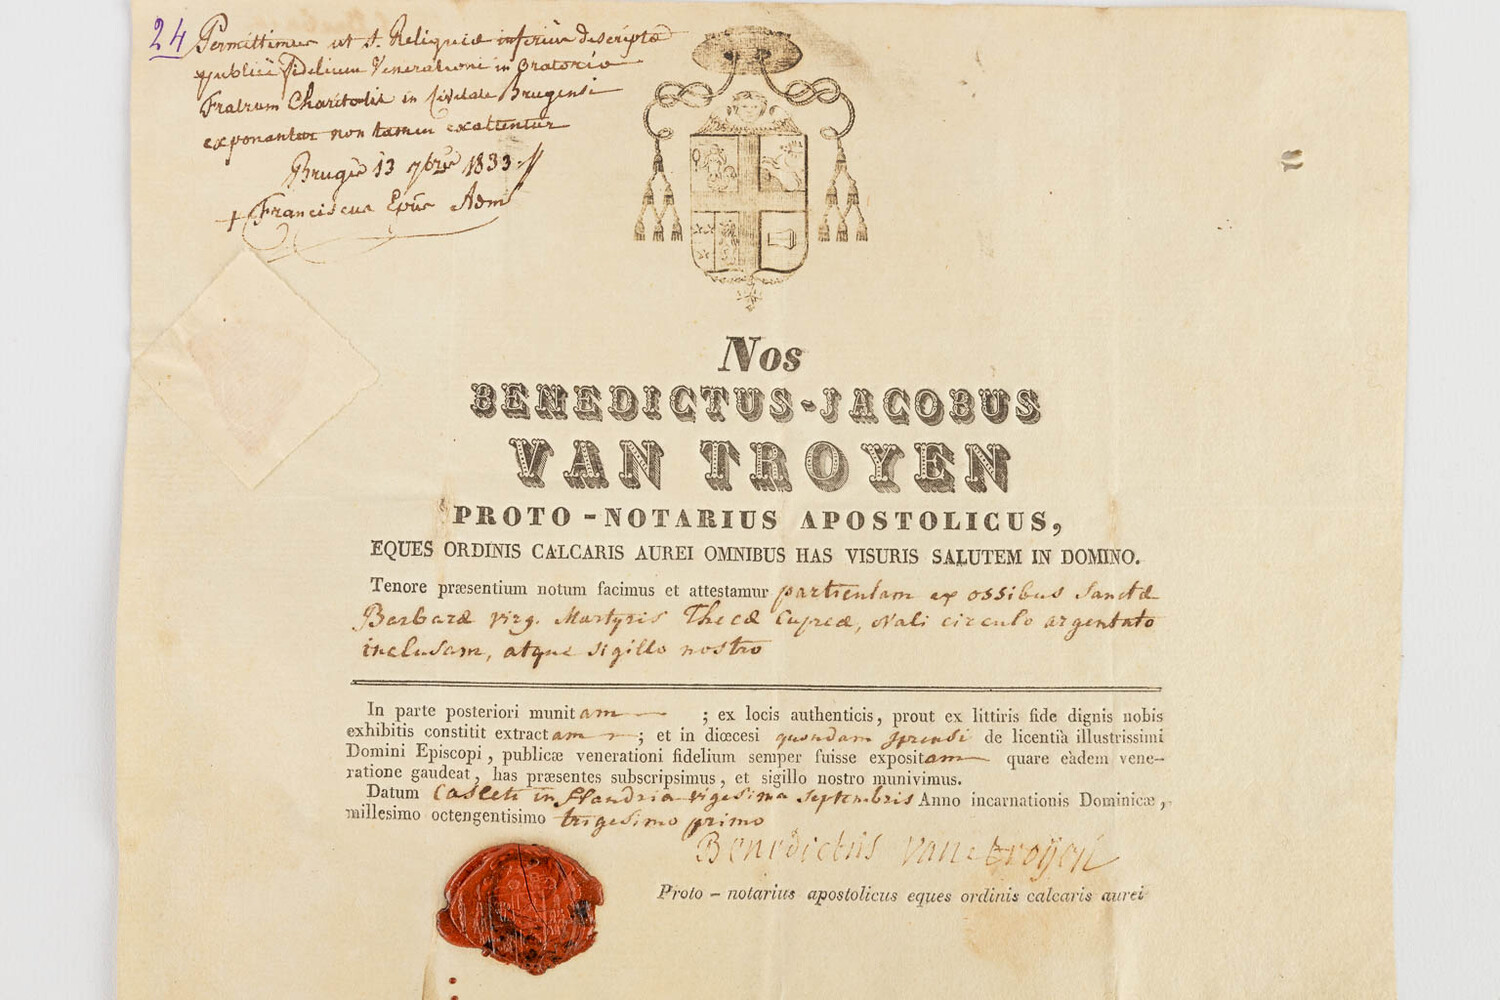 24
Permittimus ut S. Reliquiæ inferius descriptæ
publicè fidelium Venerationi in Oratorio
Fratrum Charitatis in Civitate Brugensi
exponantur non tamen
Brugis 13 7bris 1833
+ Franciscus Epūs Adm
Nos
BENEDICTUS-JACOBUS
VAN TROYEN
PROTO-NOTARIUS APOSTOLICUS,
EQUES ORDINIS CALCARIS AUREI OMNIBUS HAS VISURIS SALUTEM IN DOMINO.
Tenore præsentium notum facimus et attestamur particulam ex ossibus Sanctæ
Barbaræ virg. Martyris Thecæ Cupreæ, ovali circulo argentato
inclusam, atque sigillo nostro
In parte posteriori munitam ; ex locis authenticis, prout ex littiris fide dignis nobis
exhibitis constitit extractam ; et in diœcesi quondam Iprensi de licentiâ illustrissimi
Domini Episcopi, publicæ venerationi fidelium semper fuisse expositam quare eâdem vene-
ratione gaudeat, has præsentes subscripsimus, et sigillo nostro munivimus.
Datum Casleti in Flandria vigesima septembris Anno incarnationis Dominicæ,
millesimo octengentisimo trigesimo primo
Benedictus van troyen
Proto-notarius apostolicus eques ordinis calcaris aurei